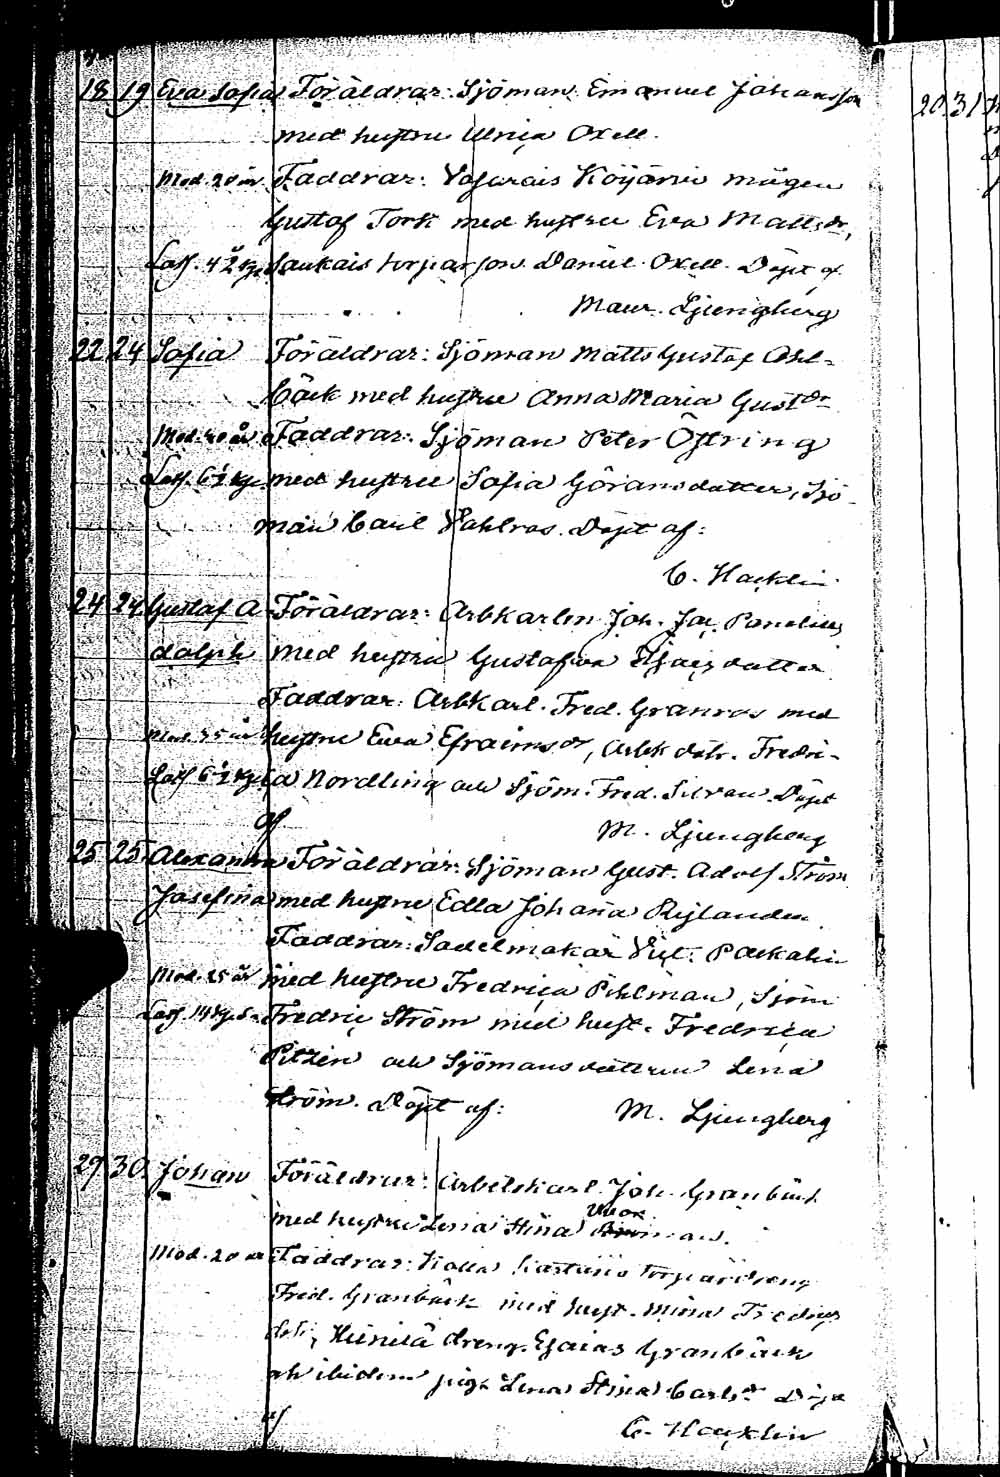 18. 19 Eva Sofia Föräldrar: Sjöman Emanuel Johansson
med hustru Ulrica Oxell.
Mod. 20 år. Faddrar: mågen
Gustaf Tork med hustru Eva Mattsdr,
torparson Daniel Oxell. Döpt af
Maur. Ljungberg
22 24 Sofia Föräldrar: Sjöman Matts Gustaf Ahl-
bäck med hustru Anna Maria Gustdr
Mod. 40 år Faddrar: Sjöman Peter Öftring
med hustru Sofia Göransdotter, Sjö
man Carl Vahlros. Döpt af:
C. Hacklin
24 24. Gustaf A- Föräldrar: Arbkarlen Joh. Jac.
dolph med hustru Gustafva
Faddrar: Arbkarl. Fred. Granros med
Mod. 35 år hustru Eva Efraimsdr, Arbk dotr. Fredri-
ca Nordling och Sjöm. Fred. Silvan Döpt
af M. Ljungberg
25 25. Alexandra Föräldrar: Sjöman Gust. Adolf Ström
Josefina med hustru Edla Johanna
Faddrar: Sadelmakar
Mod. 25 år med hustru Fredrica Pihlman, Sjöm
Fredric Ström med hust. Fredrica
och Sjömansdottren Lena
Ström. Döpt af: M. Ljungberg
29 30. Johan Föräldrar: Arbetskarl. Joh. Granbäck
med hustru Lena Stina
Mod. 20 år Faddrar: torpardreng
Fred. Granbäck med hust. Mina
dreng. Esaias Granbäck
och ibidem piga Lena Stina Carlsdr Döpt
af C. Hacklin
20. 31